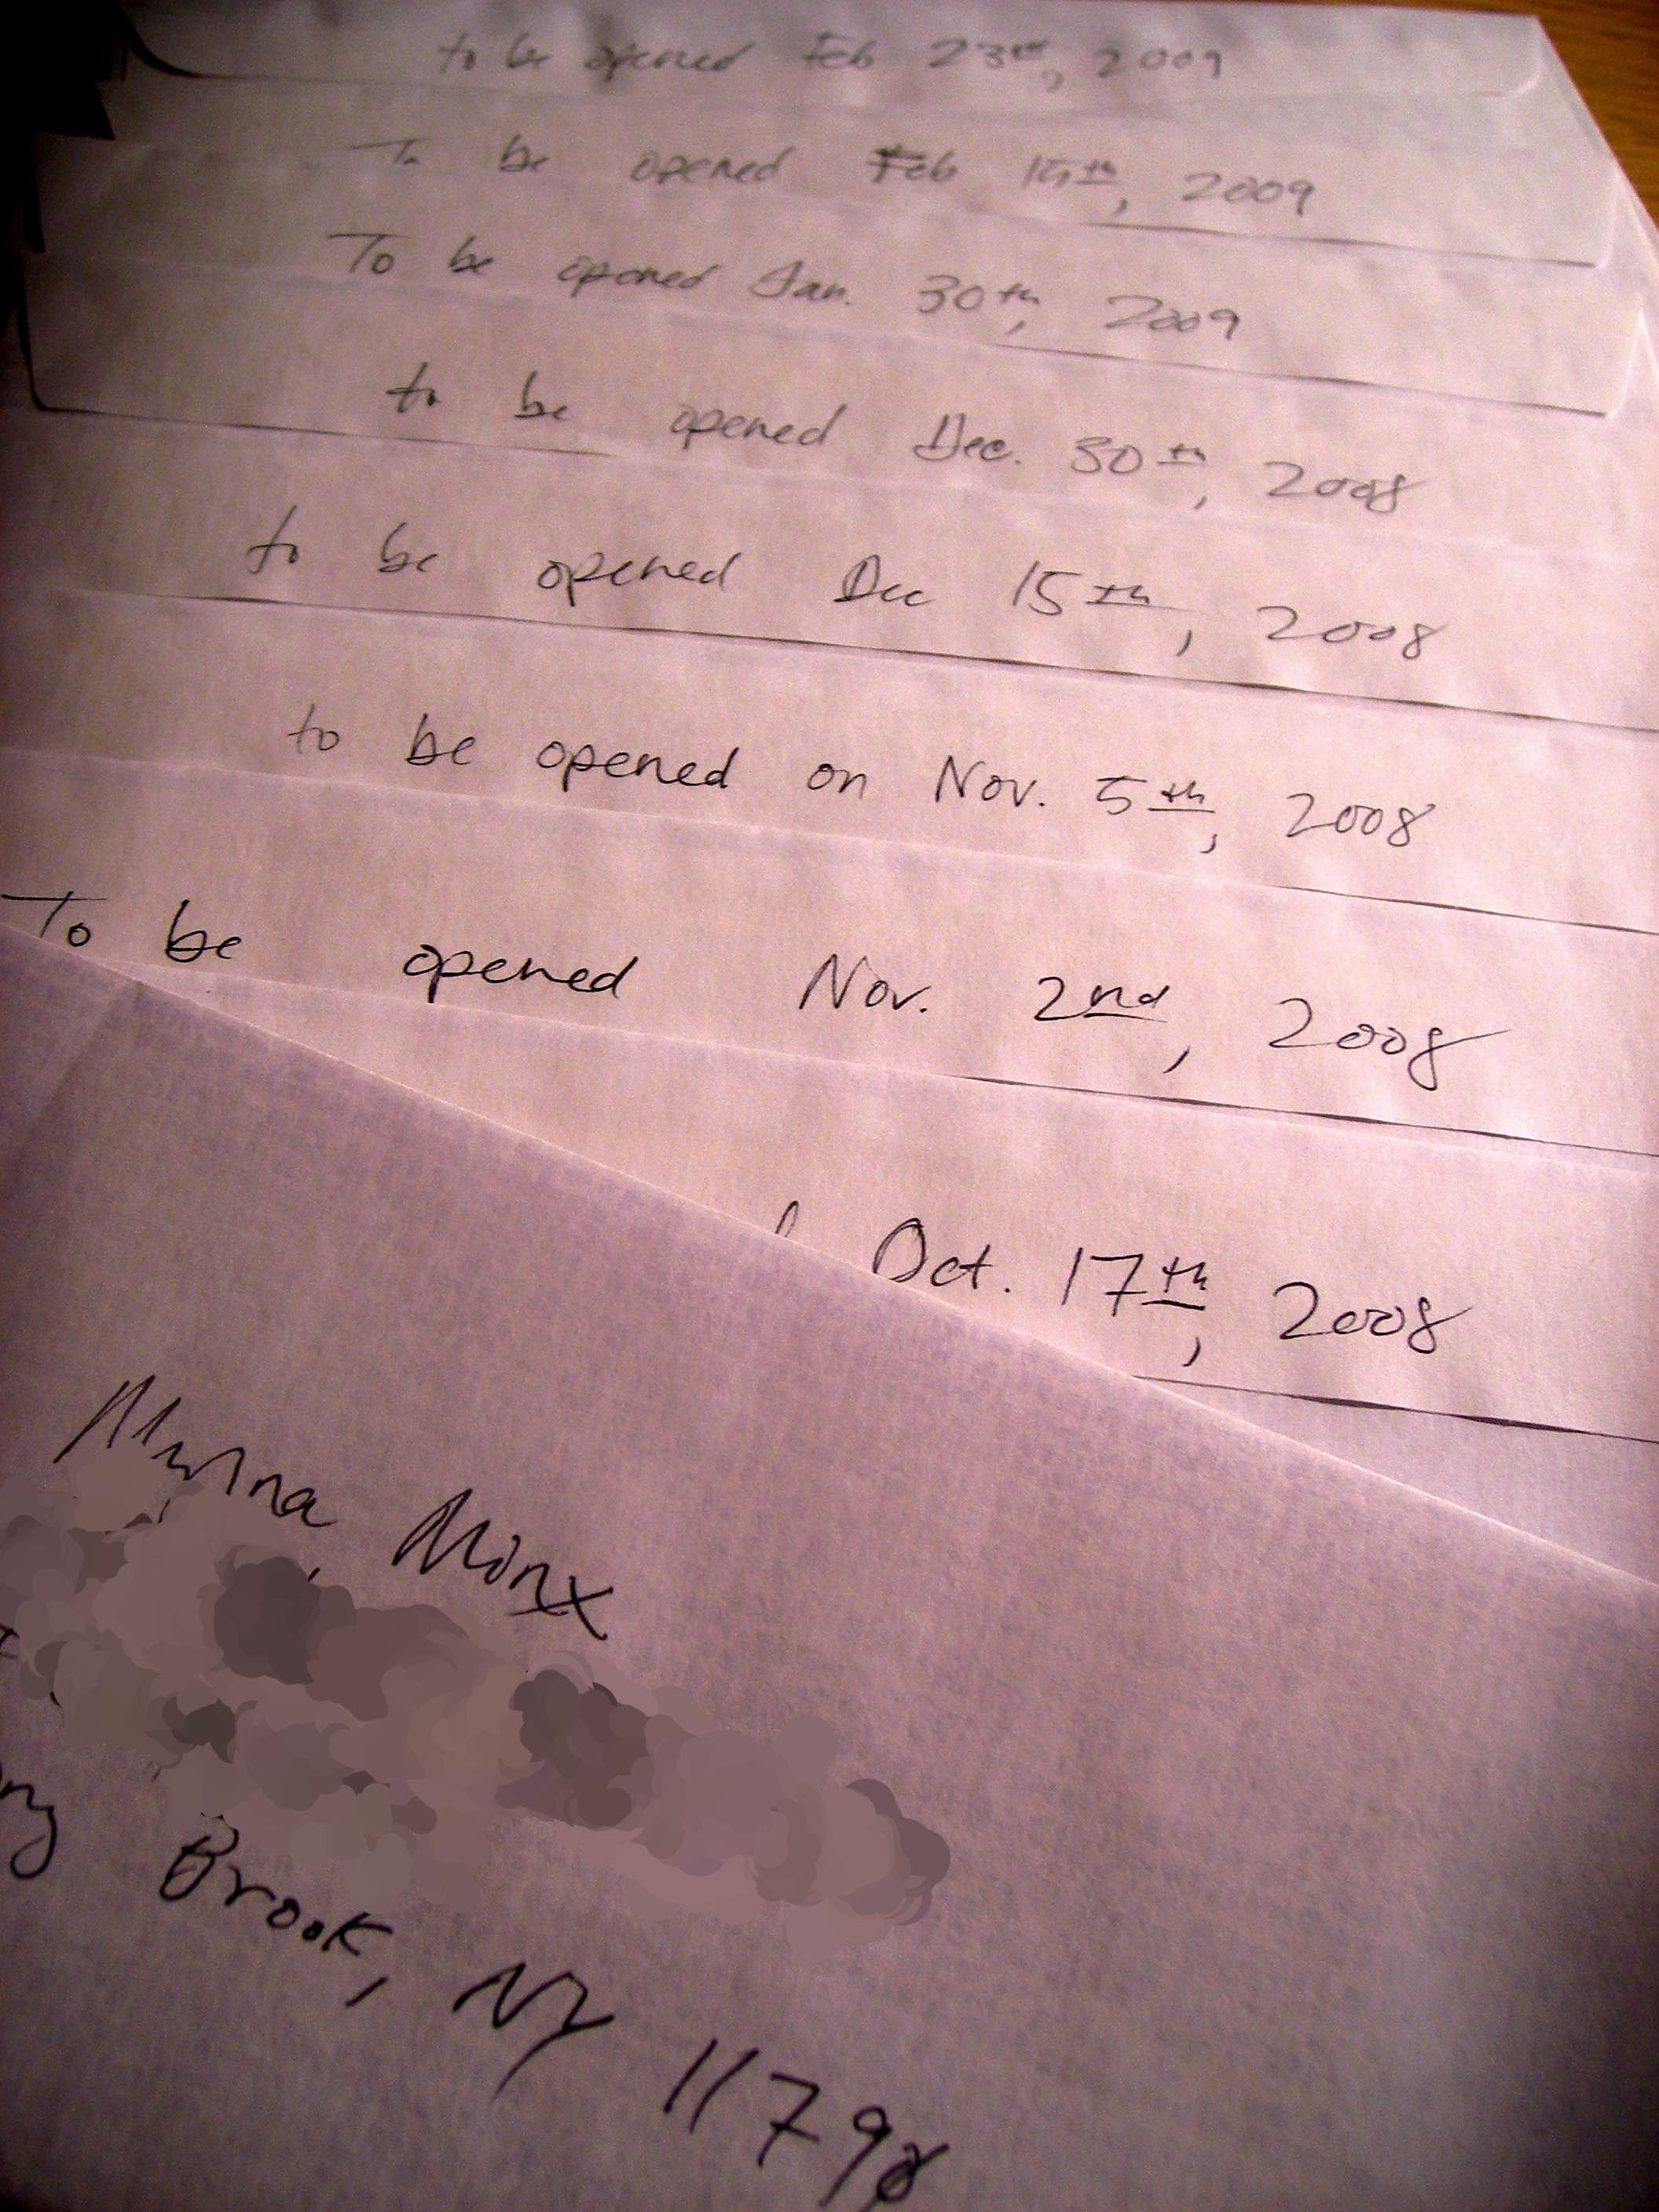 to be opened Feb 23rd, 2009
To be opened Feb 15th, 2009
To be opened Jan. 30th, 2009
to be opened Dec. 30th, 2008
to be opened Dec 15th, 2008
to be opened on Nov. 5th, 2008
To be opened Nov. 2nd, 2008
Oct. 17th, 2008
Minx
Brook, NY 11790